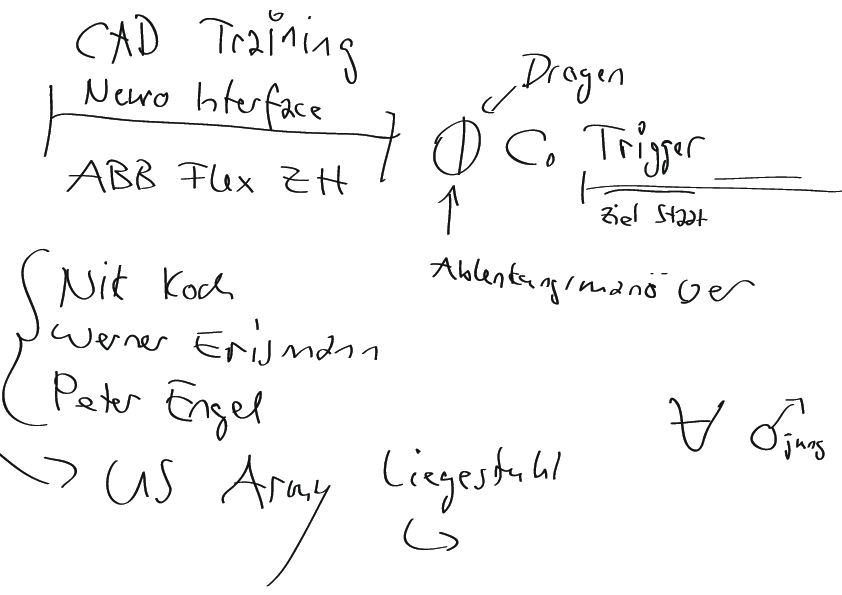 CAD Training
Neuro Interface
ABB Flex ZH
Drogen
C. Trigger
Ziel Staat
Ablenkungsmanöver
Nik Koch
Werner Erismann
Peter Engel
US Army Liegestuhl
∀ ♂ jung